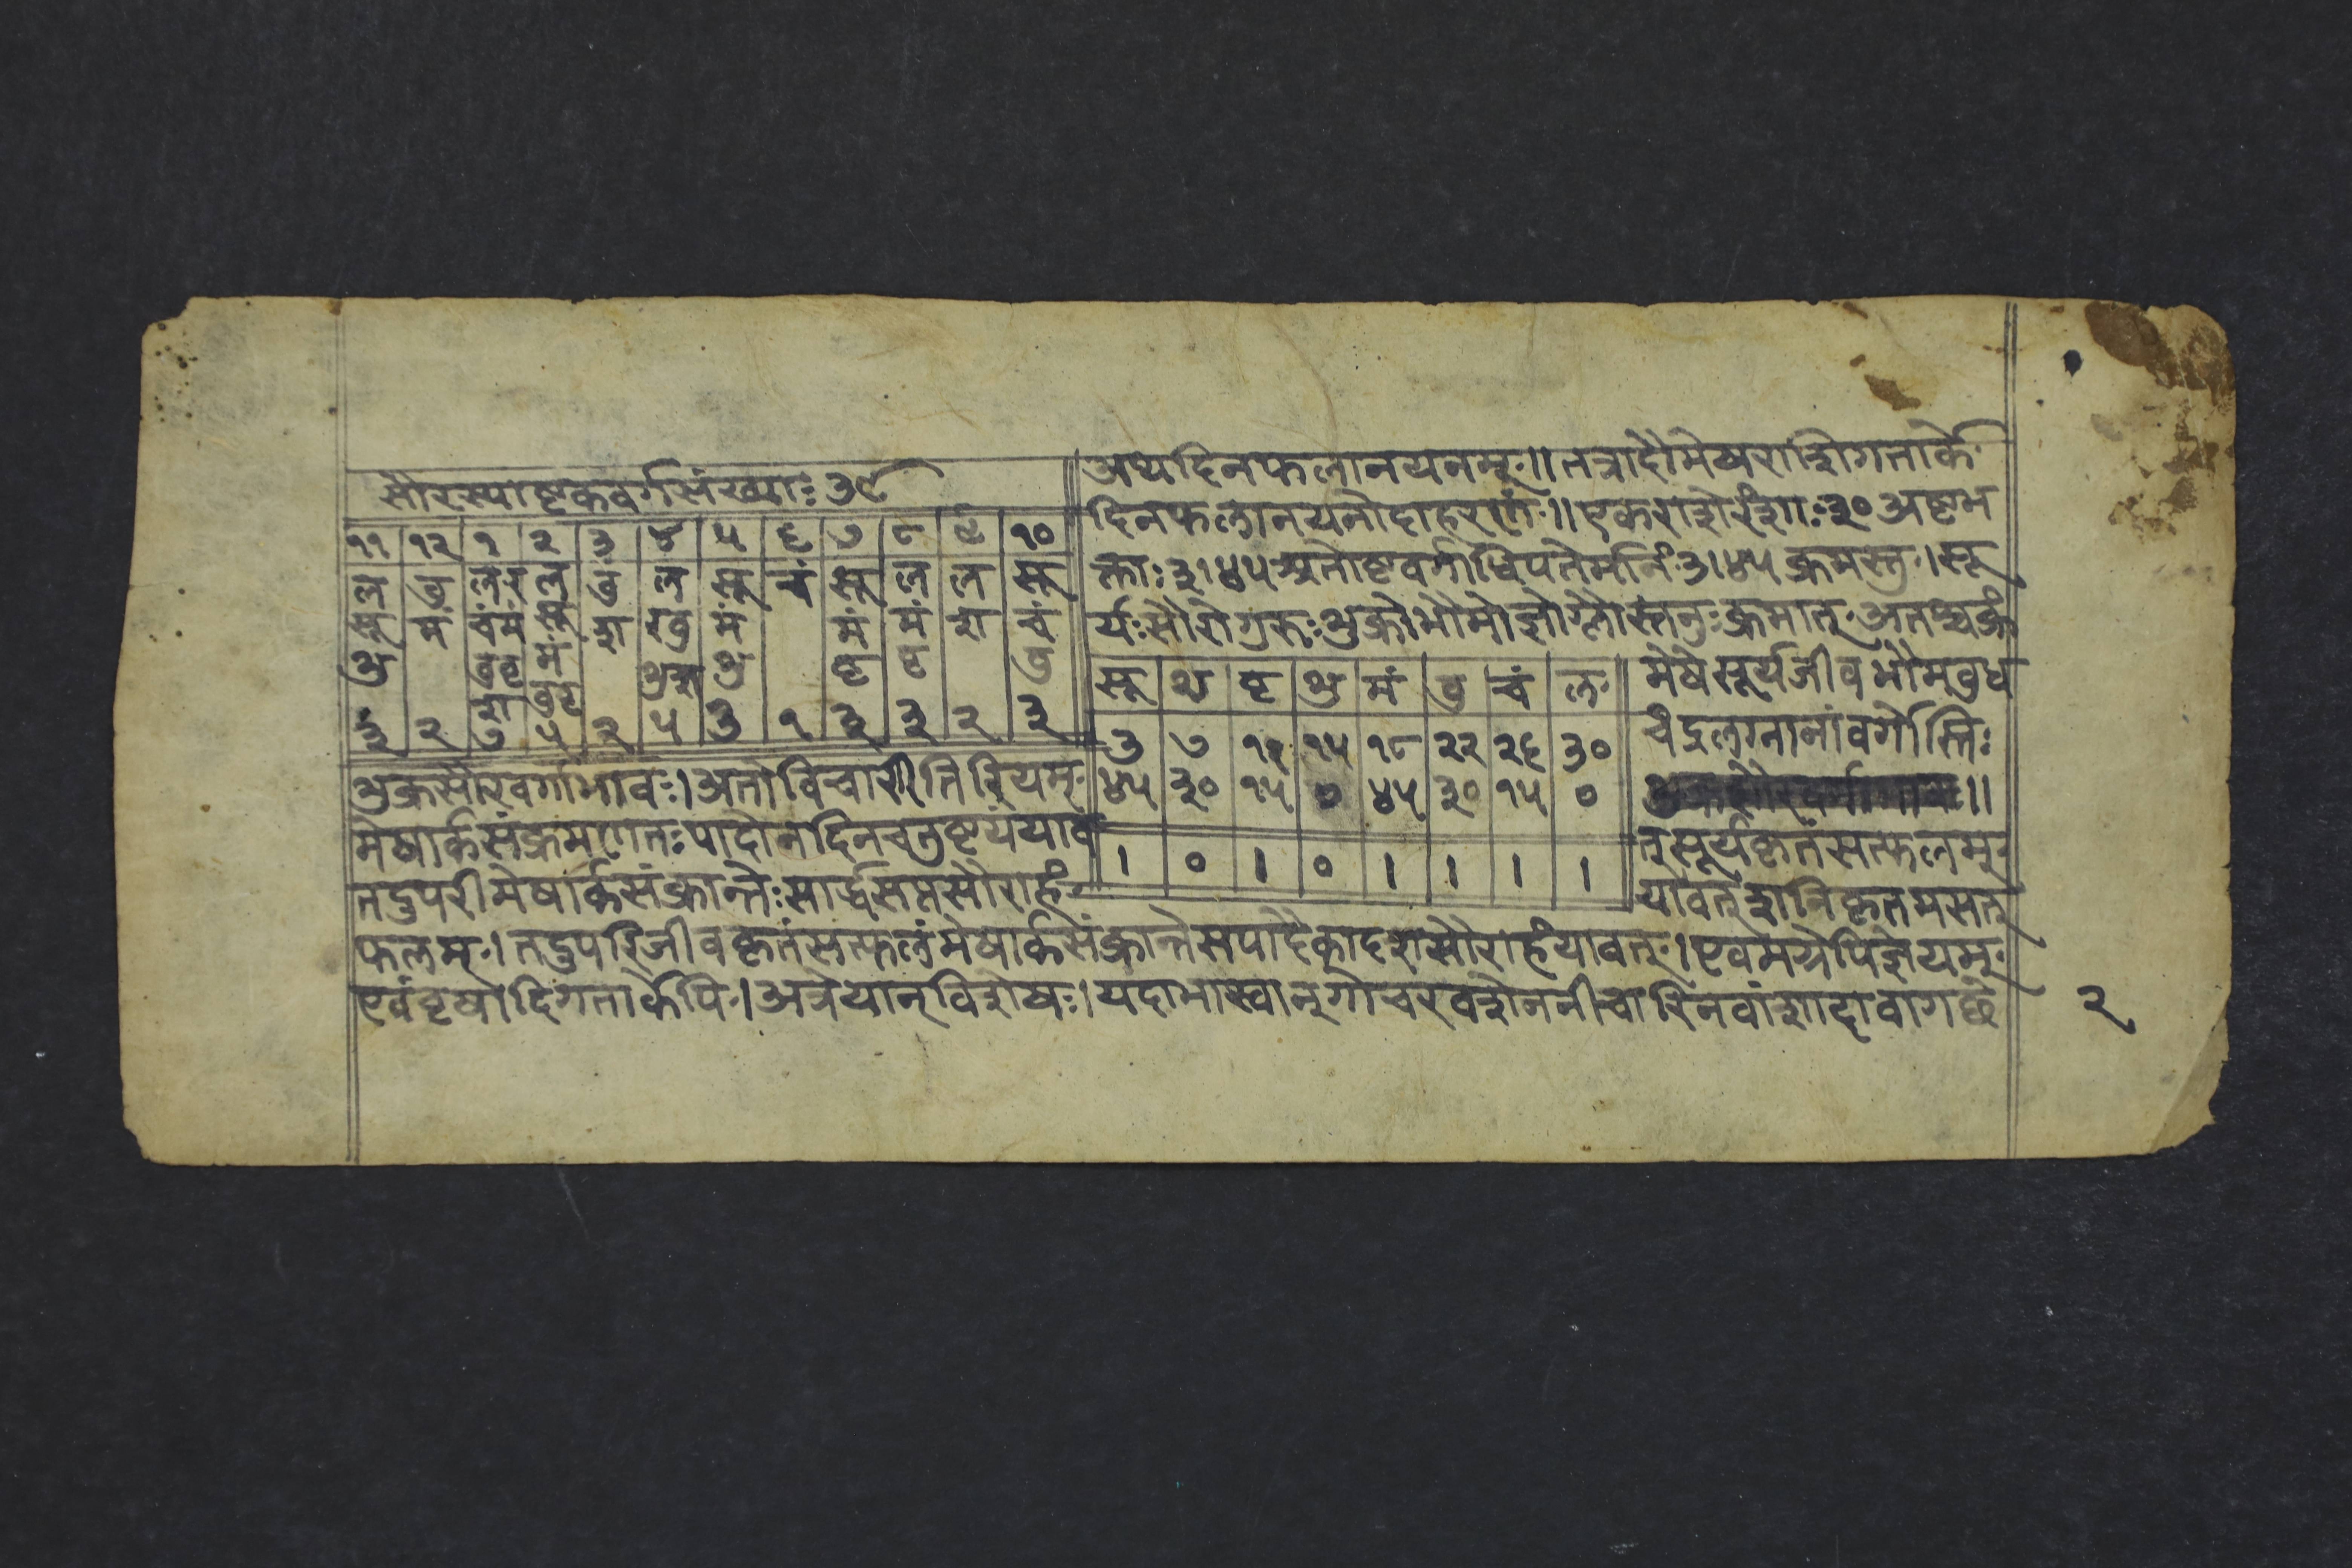 सौरस्याष्टकवर्गसंख्याः ३९
११ १२ १ २ ३ ४ ५ ६ ७ ८ ९ १०
ल बु लर ल बुं ल सू चं सू ल ल सू
सू मं चंमं सू श रबु मं मं मं श चं
शु बुवृ मं शुश शु वृ वृ बु
श बुवृ
३ २ ७ ५ २ ५ ३ १ ३ ३ २ ३
अथदिनफलानयनम् ॥ तत्रादौमेषराशिगतार्के
दिनफलानयनोदाहरणं ॥ एकराशेरंशाः ३० अष्टभ
क्ताः ३।४५ अतोष्टवर्गाधिपतेर्मानं ३।४५ क्रमस्तु । सू
र्यःसौरोगुरुःशुक्रोभौमोज्ञोग्लौस्तनुःक्रमात्
सू श वृ शु मं बु चं ल
३ ७ ११ १५ १८ २२ २६ ३०
४५ ३० १५ ० ४५ ३० १५ ०
। ० । ० । । । ।
मेषेसूर्यजीवभौमबुध
चंद्रलग्नानांवर्गोस्ति
शुक्रसौरवर्गाभावः । अतोविचारीतिरियम्
मेषार्कसंक्रमणतःपादोनदिनचतुष्टयंयाव
त्सूर्यकृतंसत्फलम्
तदुपरीमेषार्कसंक्रान्तेःसार्द्धसप्तसौराहं
यावत्शनिकृतमसत्
फलम् । तदुपरिजीवकृतंसत्फलंमेषार्कसंक्रान्तेसपादैकादशसौराहंयावत् । एवमग्रेपिज्ञेयम्
एवंवृषादिगतार्केपि । अत्रेयान्विशेषः । यदाभास्वान्गोचरवशेननीचारिनवांशादावागछे
२